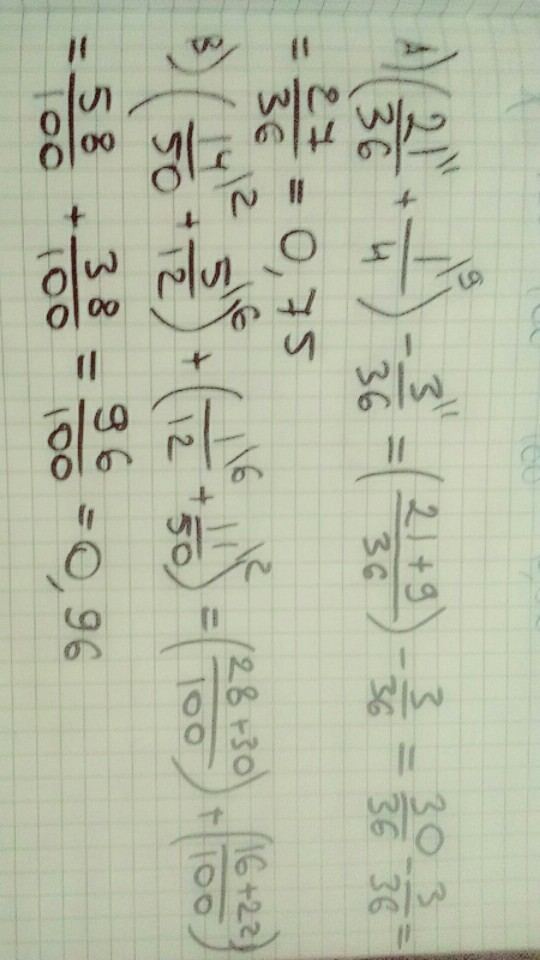 А) (21\1/36 + 1\9/4) - 3\1/36 = (21+9/36) - 3/36 = 30/36 - 3/36 =
= 27/36 = 0,75
В) (14\2/50 + 5\6/12) + (1\6/12 + 11\2/50) = (28+30/100) + (16+22/100)
= 58/100 + 38/100 = 96/100 = 0,96